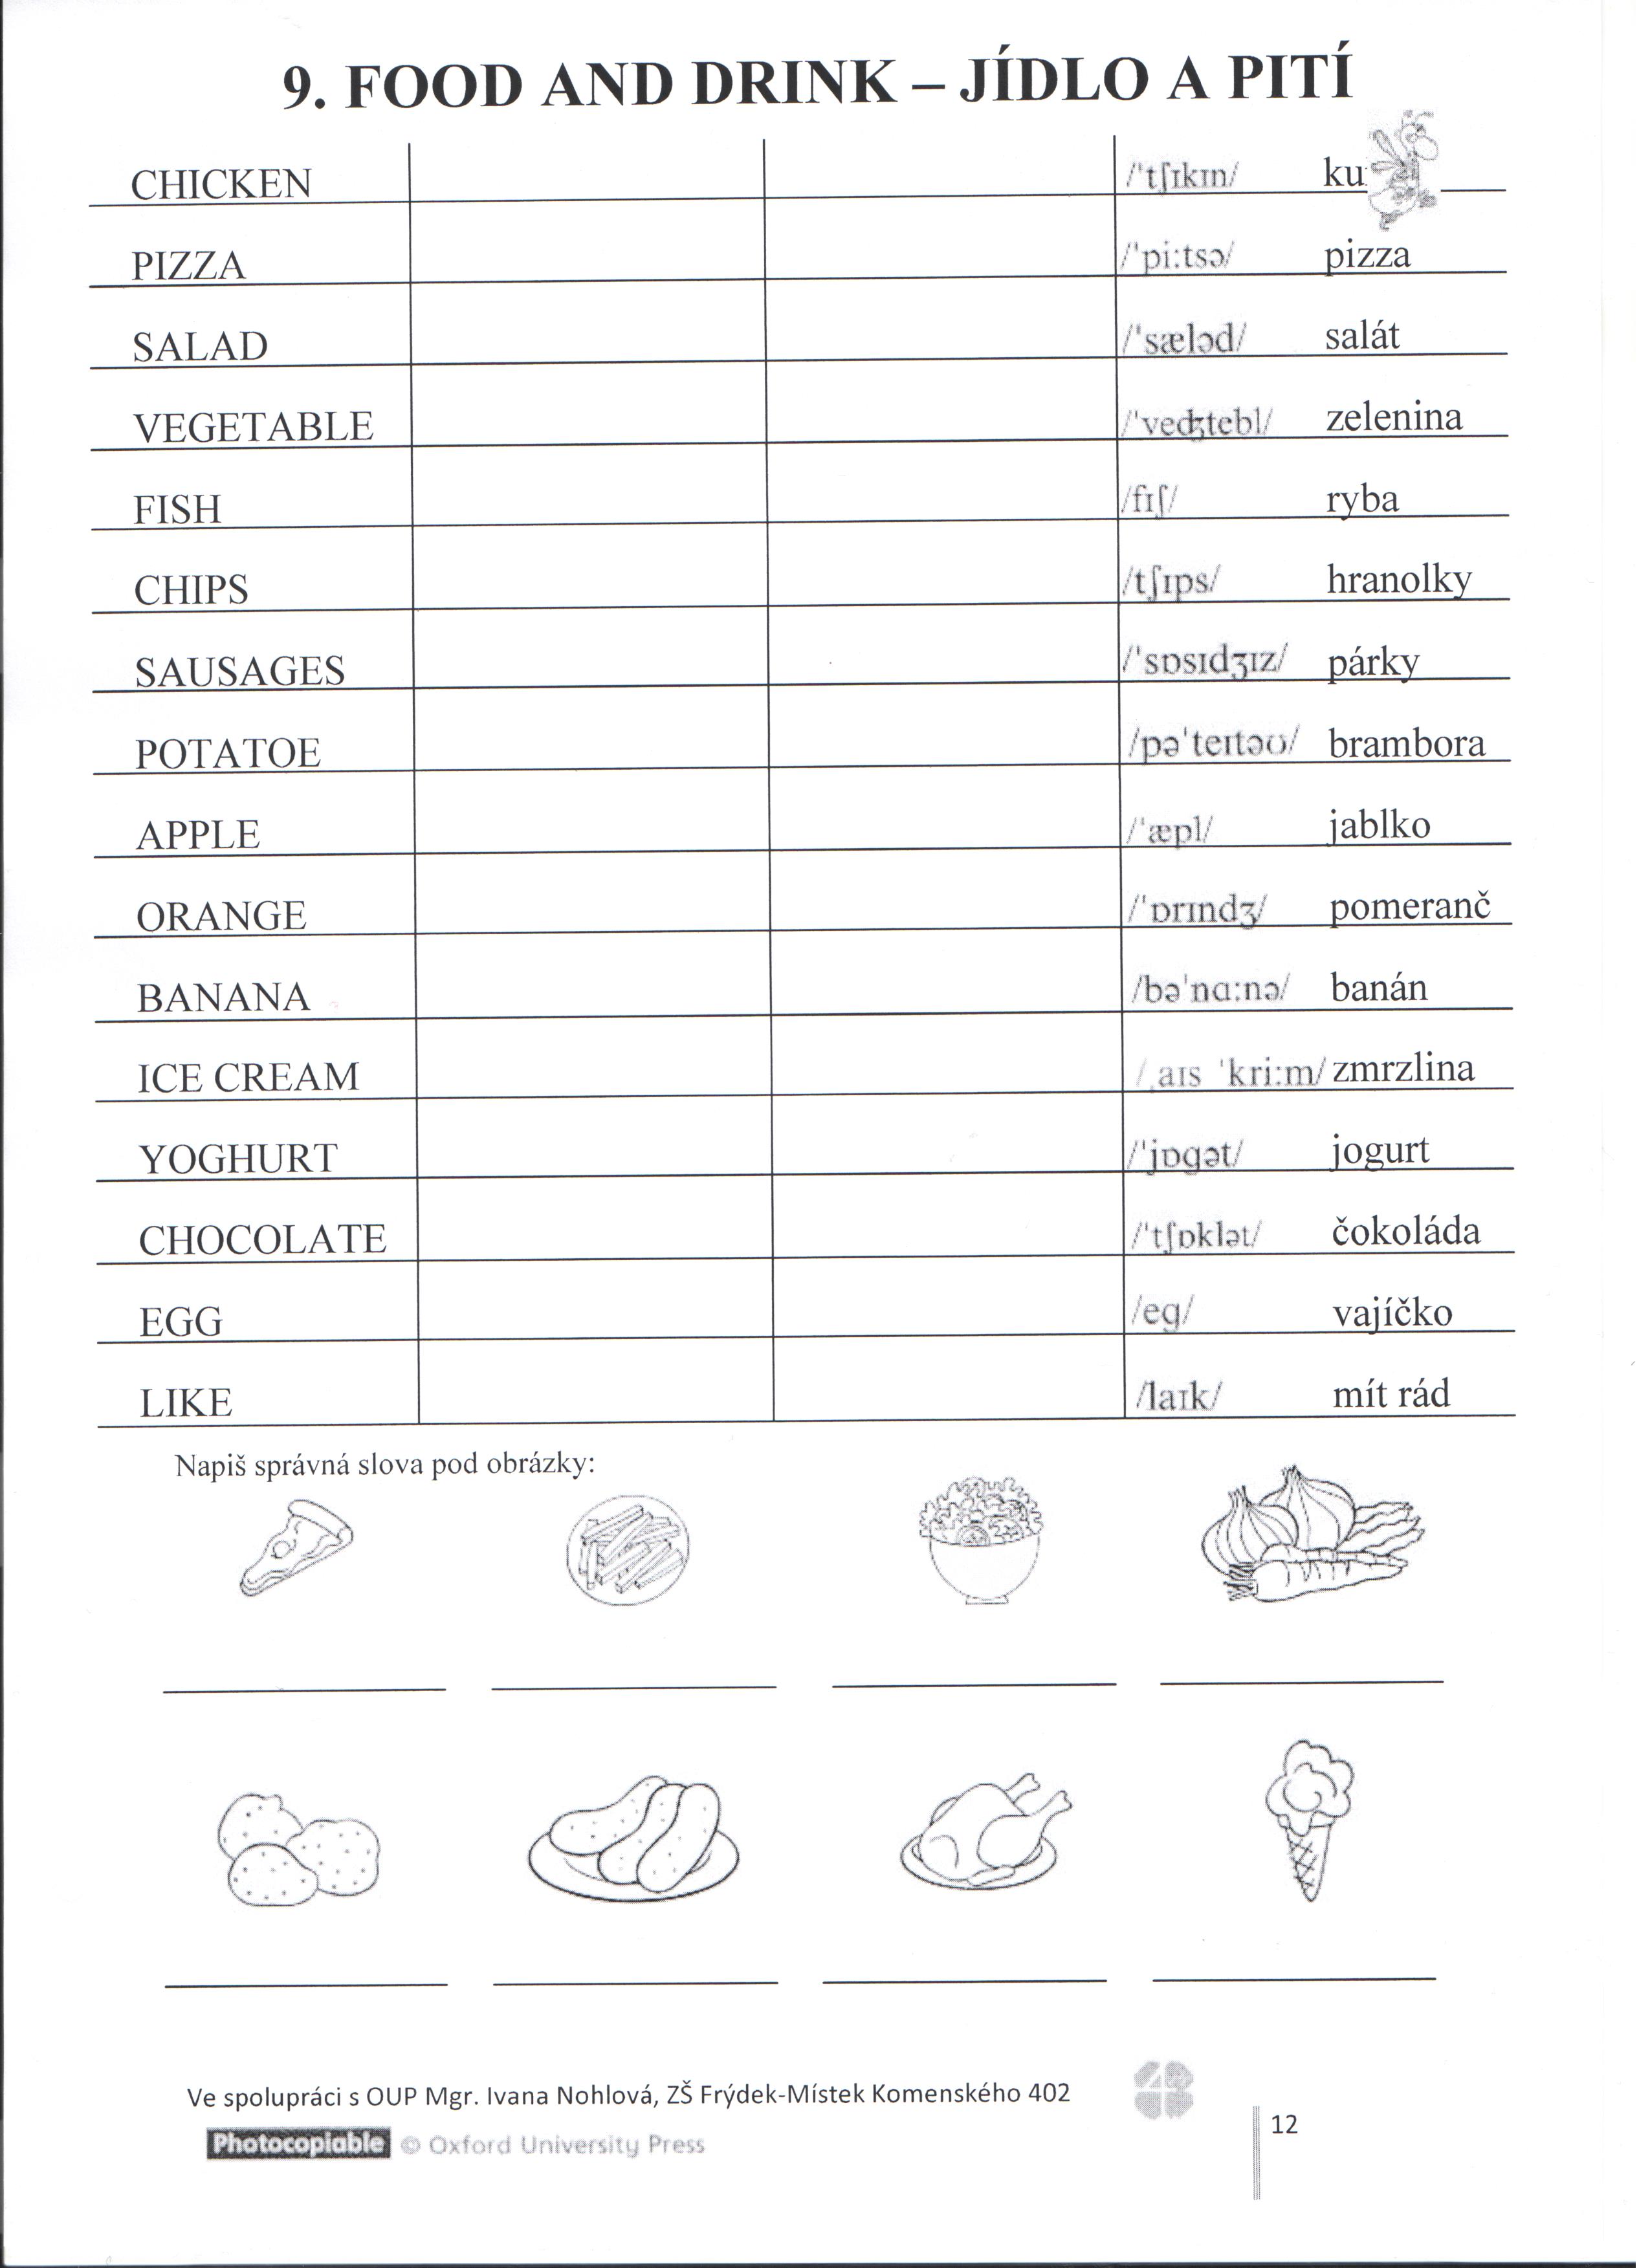 9. FOOD AND DRINK – JÍDLO A PITÍ
CHICKEN /ˈtʃɪkɪn/ ku
PIZZA /ˈpiːtsə/ pizza
SALAD /ˈsæləd/ salát
VEGETABLE /ˈveʤtebl/ zelenina
FISH /fɪʃ/ ryba
CHIPS /tʃɪps/ hranolky
SAUSAGES /ˈsɒsɪdʒɪz/ párky
POTATOE /pəˈteɪtəʊ/ brambora
APPLE /ˈæpl/ jablko
ORANGE /ˈɒrɪndʒ/ pomeranč
BANANA /bəˈnɑːnə/ banán
ICE CREAM /ˌaɪs ˈkriːm/ zmrzlina
YOGHURT /ˈjɒgət/ jogurt
CHOCOLATE /ˈtʃɒklət/ čokoláda
EGG /eg/ vajíčko
LIKE /laɪk/ mít rád
Napiš správná slova pod obrázky:
Ve spolupráci s OUP Mgr. Ivana Nohlová, ZŠ Frýdek-Místek Komenského 402
Photocopiable © Oxford University Press
12